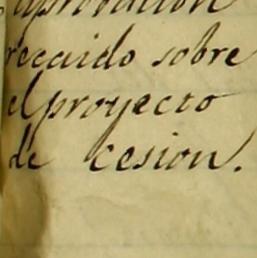 aprobacion
recaido sobre
el proyecto
de cesion.